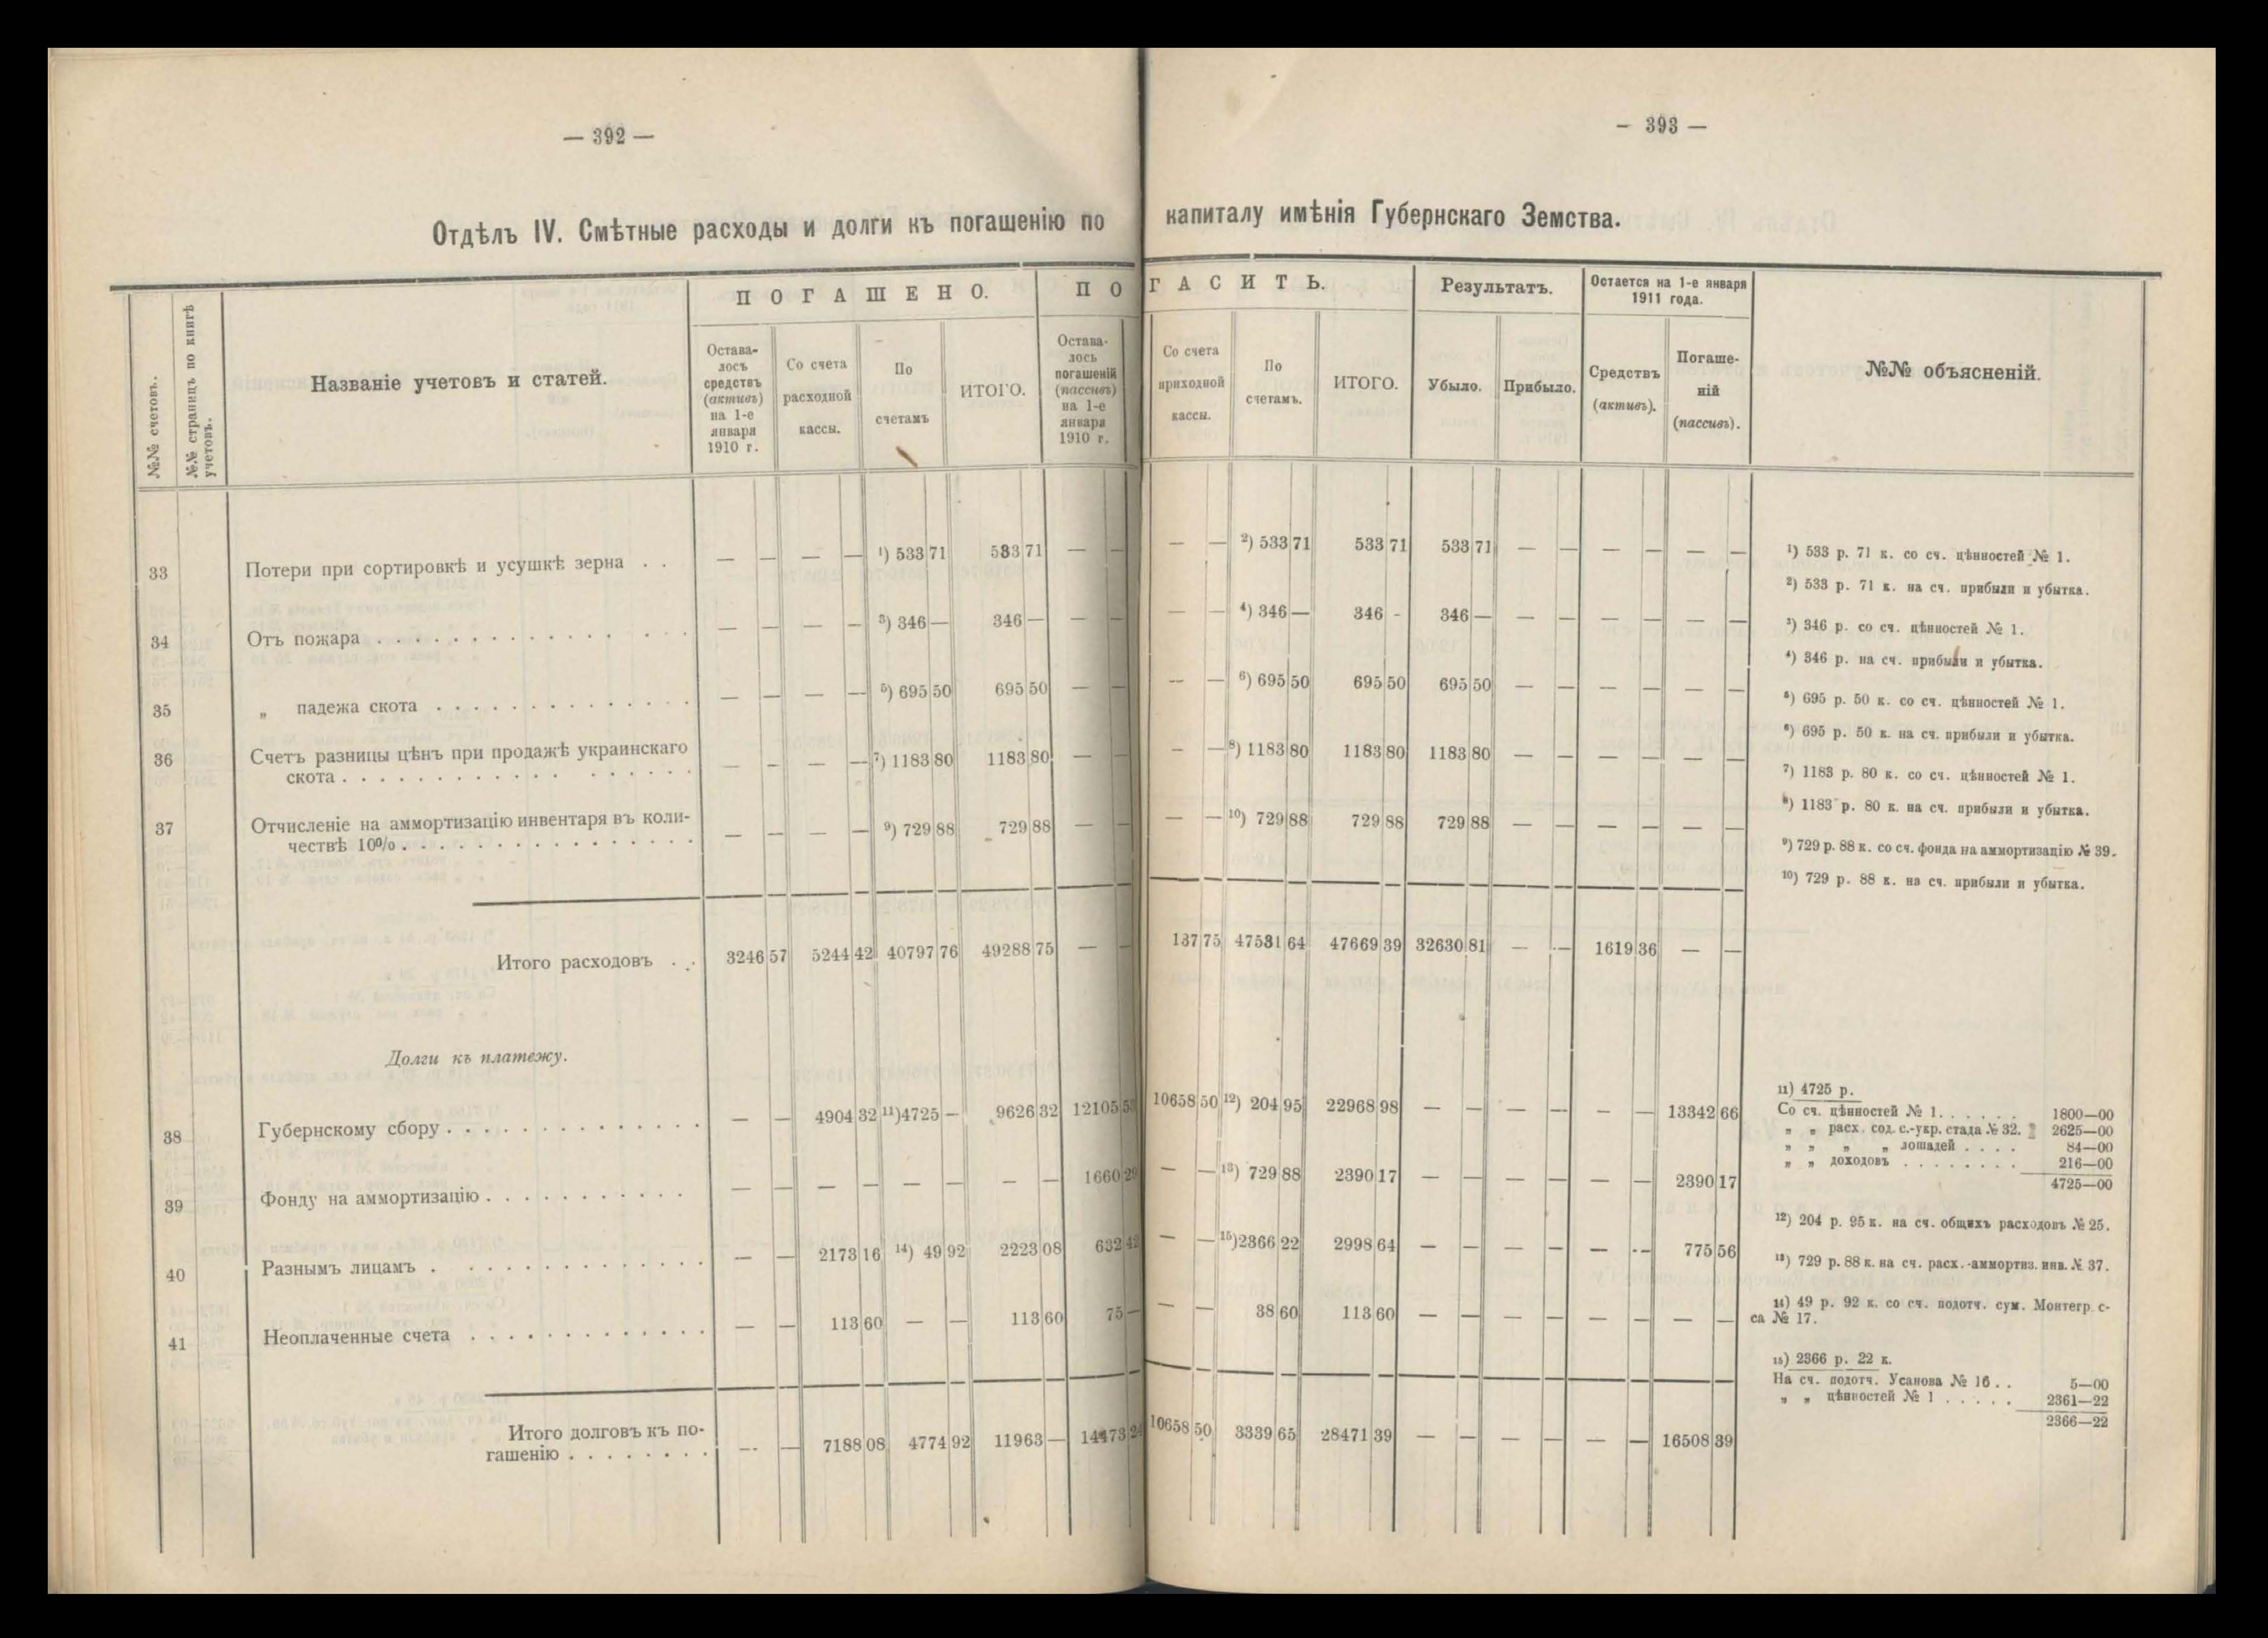 — 392 —
Отдѣлъ IV. Смѣтные расходы и долги къ погашенію по
№№ счетовъ.
№№ страницъ по книгѣ учетовъ.
Названіе учетовъ и статей.
ПОГАШЕНО.
ПО
Остава-
лось
средствъ
(активъ)
на 1-е
января
1910 г.
Со счета
расходной
кассы.
По
счетамъ
ИТОГО.
Остава-
лось
погашеній
(пассивъ)
на 1-е
января
1910 г.
33 Потери при сортировкѣ и усушкѣ зерна . . — — — — ¹) 533 71 583 71 — —
34 Отъ пожара . . . — — — — ³) 346 — 346 — — —
35 „ падежа скота . . . — — — — ⁵) 695 50 695 50 — —
36 Счетъ разницы цѣнъ при продажѣ украинскаго
скота . . . — — — — ⁷) 1183 80 1183 80 — —
37 Отчисленіе на аммортизацію инвентаря въ коли-
чествѣ 10% . . . — — — — ⁹) 729 88 729 88 — —
Итого расходовъ . . 3246 57 5244 42 40797 76 49288 75 — —
Долги къ платежу.
38 Губернскому сбору . . . — — 4904 32 ¹¹) 4725 — 9626 32 12105
39 Фонду на аммортизацію . . . — — — — — — — — 1660
40 Разнымъ лицамъ . . . — — 2173 16 ¹⁴) 49 92 2223 08 632
41 Неоплаченные счета . . . — — 113 60 — — 113 60 75 —
Итого долговъ къ по-
гашенію . . . — — 7188 08 4774 92 11963 — 14473
— 393 —
капиталу имѣнія Губернскаго Земства.
ГАСИТЬ.
Результатъ.
Остается на 1-е января
1911 года.
№№ объясненій.
Со счета
приходной
кассы.
По
счетамъ.
ИТОГО.
Убыло.
Прибыло.
Средствъ
(активъ).
Погаше-
ній
(пассивъ).
— — ²) 533 71 533 71 533 71 — — — — — —
— — ⁴) 346 — 346 - 346 — — — — — — —
— — ⁶) 695 50 695 50 695 50 — — — — — —
— — ⁸) 1183 80 1183 80 1183 80 — — — — — —
— — ¹⁰) 729 88 729 88 729 88 — — — — — —
137 75 47531 64 47669 39 32630 81 — — 1619 36 — —
10658 50 ¹²) 204 95 22968 98 — — — — — — 13342 66
— — ¹³) 729 88 2390 17 — — — — — — 2390 17
— — ¹⁵) 2366 22 2998 64 — — — — — — 775 56
— — 38 60 113 60 — — — — — — — —
10658 50 3339 65 28471 39 — — — — — — 16508 39
¹) 533 р. 71 к. со сч. цѣнностей № 1.
²) 533 р. 71 к. на сч. прибыли и убытка.
³) 346 р. со сч. цѣнностей № 1.
⁴) 346 р. на сч. прибыли и убытка.
⁵) 695 р. 50 к. со сч. цѣнностей № 1.
⁶) 695 р. 50 к. на сч. прибыли и убытка.
⁷) 1183 р. 80 к. со сч. цѣнностей № 1.
⁸) 1183 р. 80 к. на сч. прибыли и убытка.
⁹) 729 р. 88 к. со сч. фонда на аммортизацію № 39.
¹⁰) 729 р. 88 к. на сч. прибыли и убытка.
¹¹) 4725 р.
Со сч. цѣнностей № 1. . . . . . 1800—00
„ „ расх. сод. с.-укр. стада № 32. 2625—00
„ „ „ „ лошадей . . . . 84—00
„ „ доходовъ . . . . . . . . 216—00
4725—00
¹²) 204 р. 95 к. на сч. общихъ расходовъ № 25.
¹³) 729 р. 88 к. на сч. расх.-аммортиз. инв. № 37.
¹⁴) 49 р. 92 к. со сч. подотч. сум. Монтегр. с-
са № 17.
¹⁵) 2366 р. 22 к.
На сч. подотч. Усанова № 16 . . 5—00
„ „ цѣнностей № 1 . . . . . 2361—22
2366—22